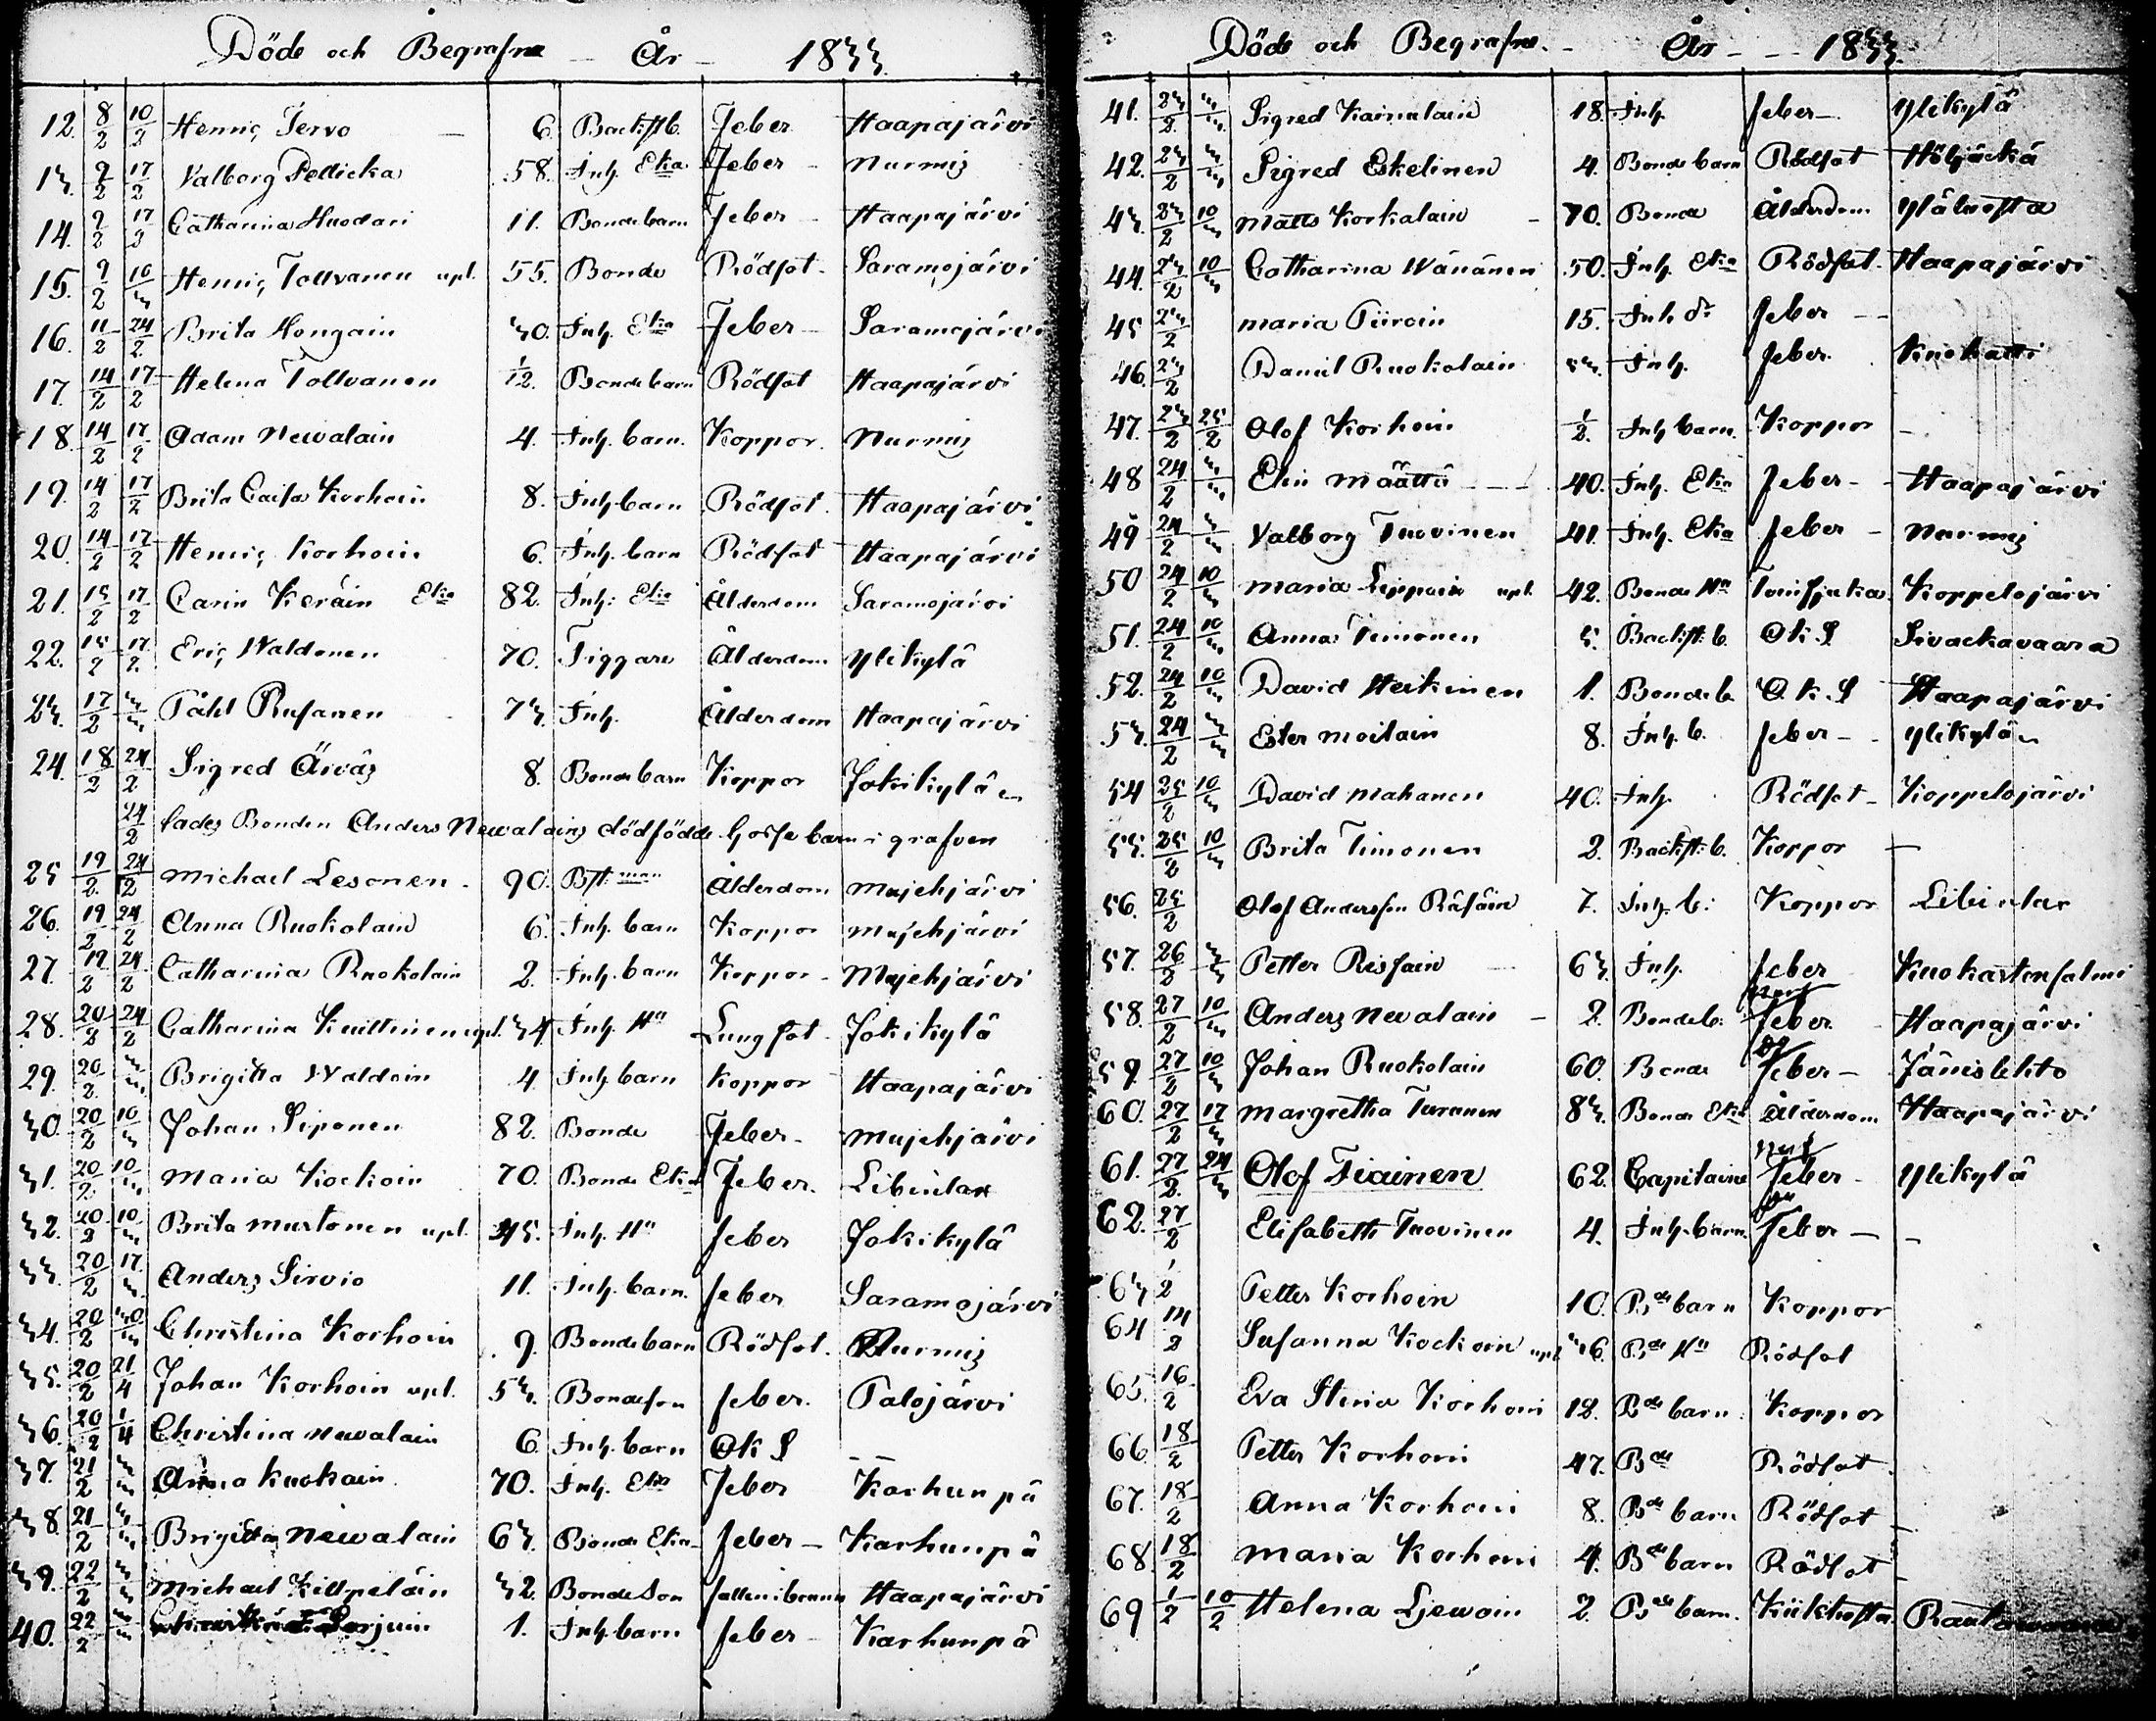 Döde och Begrafne - År - 1833.
12. 8/2 10/3 Henric Tervo - 6. Backst b. Feber Haapajärvi
13. 9/2 17/2 Valborg Pellicka 58. Inh. Eka Feber - Nurmis
14. 9/2 17/3 Catharina Huodari 11. Bonde barn Feber - Haapajärvi
15. 9/2 10/3 Henric Tollvanen upl. 55. Bonde Rödsot - Saramojärvi
16. 11/2 24/2 Brita Hongain 30. Inh. Eka Feber - Saramojärvi
17. 14/2 17/2 Helena Tollvanen 1/12. Bonde barn Rödsot Haapajärvi
18. 14/2 17/2 Adam Newalain 4. Inh. barn. Koppor. Nurmis
19. 14/2 17/2 Brita Caisa Korhoin 8. Inh barn Rödsot. Haapajärvi
20. 14/2 17/2 Henric Korhoin 6. Inh. barn Rödsot Haapajärvi
21. 15/2 17/2 Carin Keräin Eka 82. Inh: Eka Ålderdom Saramojärvi
22. 15/2 17/2 Eric Waldonen 70. Tiggare Ålderdom Ylikylä
23. 17/2 3/3 Påhl Rusanen 73. Inh. Ålderdom Haapajärvi
24. 18/2 24/2 Sigred Äiväs 8. Bonde barn Koppor Jokikylä
24/2 lades Bonden Anders Newalains dödfödde Gosse barn i grafven
25 19/2 24/2 Michael Lesonen - 90. Bst man Ålderdom Mujehjärvi
26. 19/2 24/2 Anna Ruokolain 6. Inh. barn Koppor Mujehjärvi
27. 19/2 24/2 Catharina Ruokolain 2. Inh. barn Koppor - Mujehjärvi
28. 20/2 24/2 Catharina Kuittinen upl. 34 Inh. Hu Lungsot - Jokikylä
29. 20/2 3/3 Brigitta Waldoin 4. Inh barn Koppor Haapajärvi
30. 20/2 10/3 Johan Siponen 82. Bonde Feber - Mujehjärvi
31. 20/2 10/3 Maria Kockoin 70. Bonde Eka Feber. Libinlax
32. 20/2 10/3 Brita Murtonen upl. 45. Inh. Hu Feber Jokikylä
33. 20/2 17/3 Anders Sirvio 11. Inh. barn. Feber Saramojärvi
34. 20/2 30/3 Christina Korhoin 9. Bonde barn Rödsot. Nurmis
35. 20/2 21/4 Johan Korhoin upl. 53. Bondeson Feber. Palojärvi
36. 20/2 1/4 Christina Newalain 6 Inh. barn Ok S - -
37. 21/2 3/3 Anna Kuokain 70. Inh. Eka Feber Karhunpä
38. 21/2 3/3 Brigitta Newalain 63. Bonde Eka - Feber - Karhunpä
39. 22/2 3/3 Michael Kilpeläin 32. Bonde Son fallen i brunn Haapajärvi
40. 22/2 3/3 Sorjuin 1. Inh barn Feber - Karhunpä
Döde och Begrafne. - År - - 1833.
41. 23/2 3/3 Sigred Kainulain 18. Inh. Feber - Ylikylä
42. 23/2 3/3 Sigred Eskelinen 4. Bonde barn Rödsot Höljäckä
43. 23/2 10/3 Matts Korkalain - 70. Bonde Ålderdom
44. 23/2 10/3 Catharina Wänänen 50. Inh. Eka Rödsot. Haapajärvi
45 23/2 Maria Piiroin 15. Inh. dr Feber - -
46. 23/2 Daniel Ruokolain 53. Inh. Feber.
47. 23/2 25/2 Olof Korhoin 1/2. Inh barn. Koppor -
48 24/2 3/3 Elin Määttä - - 40. Inh. Eka Feber - - Haapajärvi
49 24/2 3/3 Valborg Tuovinen 41. Inh. Eka Feber - Nurmis
50 24/2 10/3 Maria Leppäin upl. 42. Bonde Hu Koppelojärvi
51. 24/2 10/3 Anna Timonen 5. Backst: b. Ok S Sivackavaara
52. 24/2 10/3 David Heikinen 1. Bonde b. O.k.S Haapajärvi
53. 24/2 3/3 Ester Moilain 8. Inh. b. Feber - - Ylikylä
54 25/2 10/3 David Mahanen 40. Inh. Rödsot - Koppelojärvi
55. 25/2 10/3 Brita Timonen 2. Backst: b. Koppor -
56. 25/2 Olof Andersson Räsäin 7. Inh. b: Koppor Libinlax
57. 26/2 3/3 Petter Rissain - 63. Inh. Feber Kuokastensalmi
58. 27/2 10/3 Anders Newalain - 2. Bonde b. Nerf Feber - Haapajärvi
59. 27/2 10/3 Johan Ruokolain 60. Bonde Feber - Jänislehto
60. 27/2 17/3 Margretha Turunen 83. Bonde Eka Ålderdom Haapajärvi
61. 27/2 24/3 Olof Tiainen 62. Capitaine Nerf Feber - Ylikylä
62. 27/2 Elisabeth Tuovinen 4. Inh. barn. Feber - -
63 1/2 Petter Korhoin 10. Bde barn Koppor
64 14/2 Susanna Kockoin upl 36. Bde Hu Rödsot
65. 16/2 Eva Stina Korhoin 12. Bde barn. Koppor
66. 18/2 Petter Korhoin 47. Bde Rödsot.
67. 18/2 Anna Korhoin 8. Bde barn Rödsot -
68. 18/2 Maria Korhoin 4. Bde barn Rödsot -
69 1/2 10/2 Helena Ljewoin 2. Bde barn. Kikhosta. Rautawaara